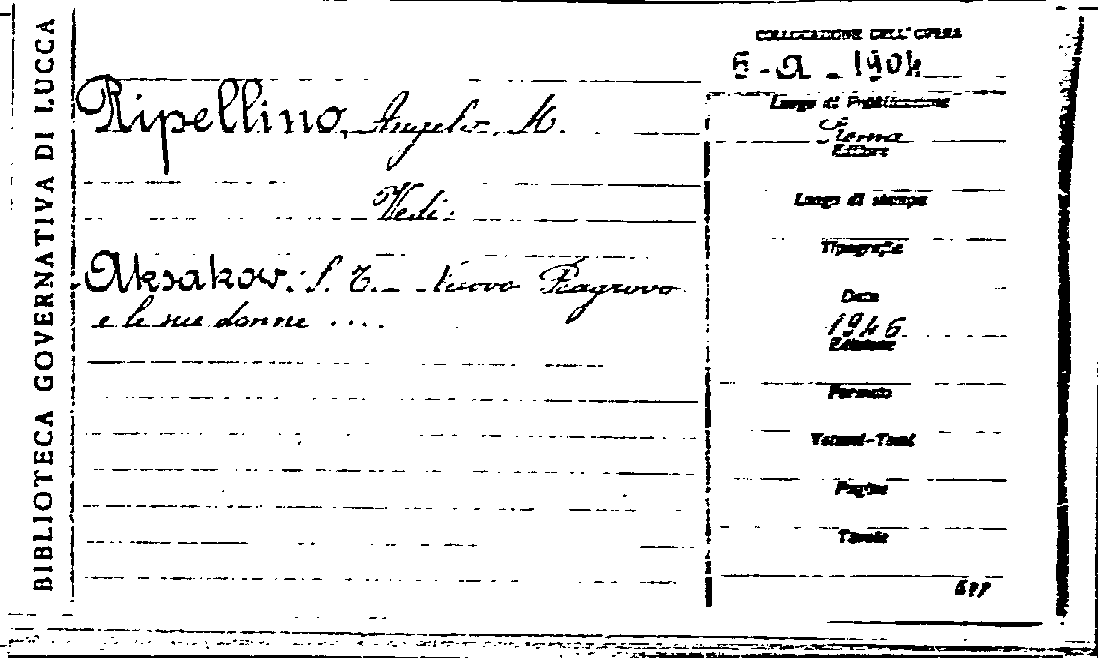 BIBLIOTECA GOVERNATIVA DI LUCCA
Ripellino, Angelo M.
Vedi:
Aksakov. S. T. - Nuovo Bagrovo
e le sue donne ....
COLLOCAZIONE DELL'OPERA
5-A - 1904
Luogo di Pubblicazione
Roma
Editore
Luogo di stampa
Tipografia
Data
1946
Edizione
Formato
Volumi-Tomi
Pagine
Tavole